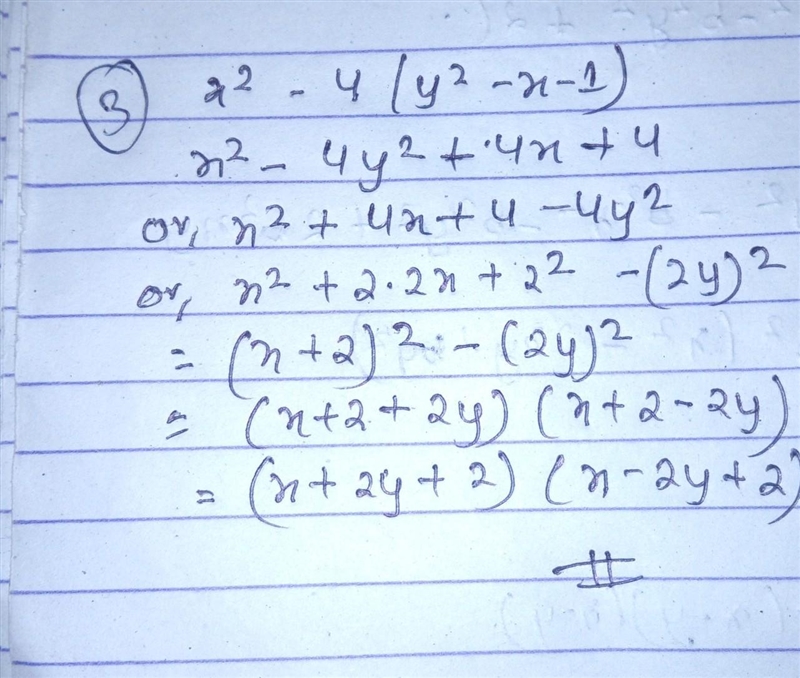 ③ x² - 4 (y² - x - 1)
x² - 4y² + 4x + 4
or, x² + 4x + 4 - 4y²
or, x² + 2·2x + 2² - (2y)²
= (x + 2)² - (2y)²
= (x + 2 + 2y) (x + 2 - 2y)
= (x + 2y + 2) (x - 2y + 2)